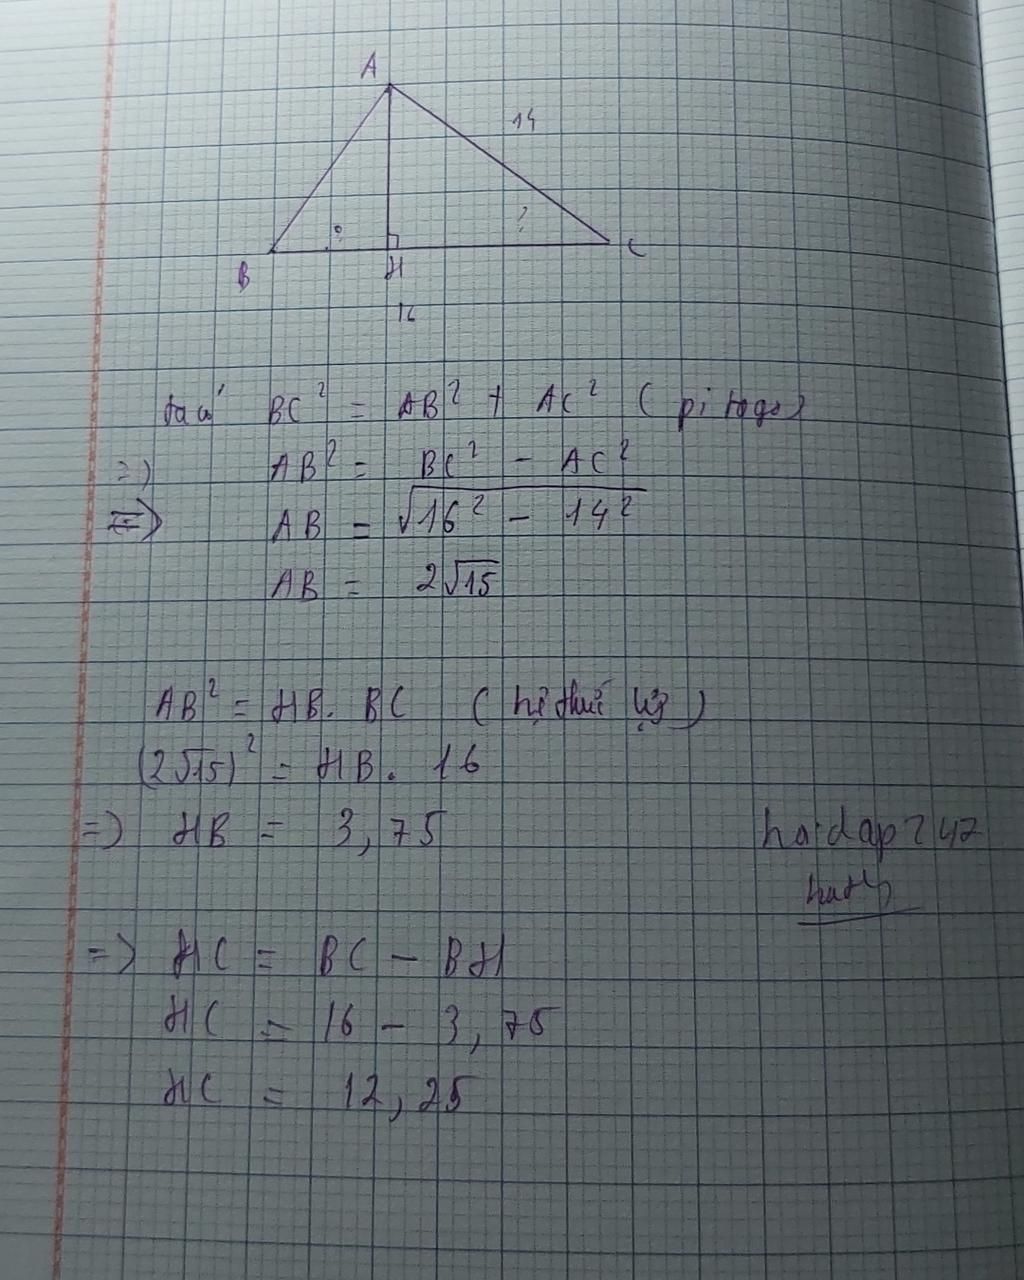 A
14
?
?
B
H
C
16
ta có BC² = AB² + AC² (pi tago)
=> AB² = BC² - AC²
=> AB = √16² - 14²
AB = 2√15
AB² = HB. BC (hệ thức
(2√15)² = HB. 16
=> HB = 3,75
hoidap247
=> HC = BC - BH
HC = 16 - 3,75
HC = 12,25